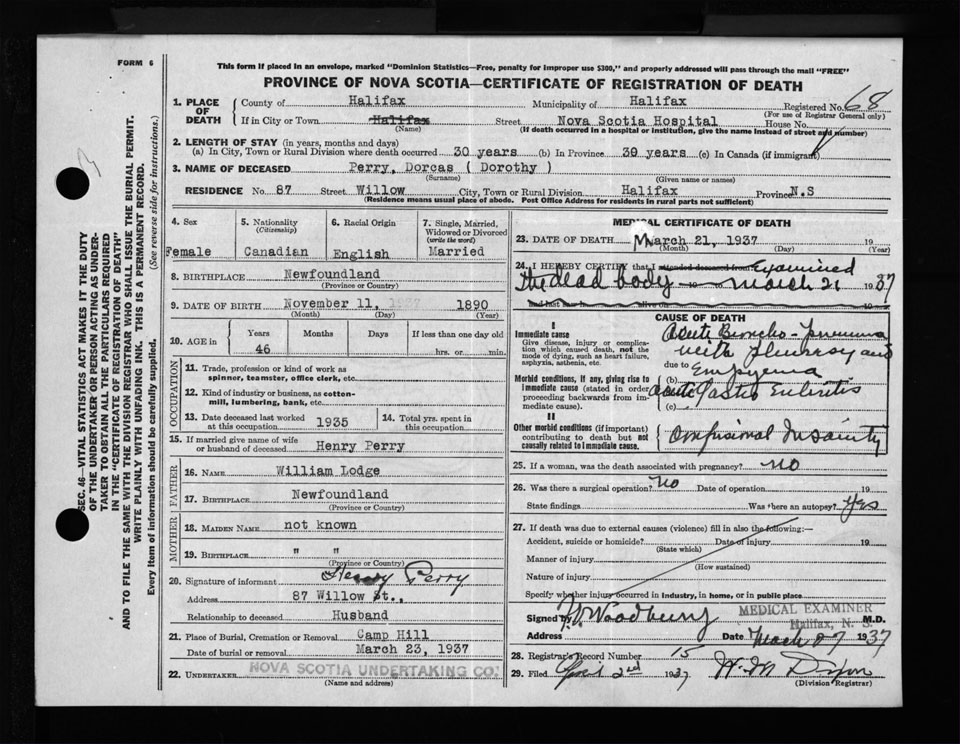 FORM 6
This form if placed in an envelope, marked "Dominion Statistics—Free, penalty for improper use $300," and properly addressed will pass through the mail "FREE"
PROVINCE OF NOVA SCOTIA—CERTIFICATE OF REGISTRATION OF DEATH
SEC. 46—VITAL STATISTICS ACT MAKES IT THE DUTY
OF THE UNDERTAKER OR PERSON ACTING AS UNDER-
TAKER TO OBTAIN ALL THE PARTICULARS REQUIRED
IN THE "CERTIFICATE OF REGISTRATION OF DEATH"
AND TO FILE THE SAME WITH THE DIVISION REGISTRAR WHO SHALL ISSUE THE BURIAL PERMIT.
WRITE PLAINLY WITH UNFADING INK. THIS IS A PERMANENT RECORD.
Every item of information should be carefully supplied. (See reverse side for instructions.)
1. PLACE OF DEATH
County of Halifax Municipality of Halifax Registered No. 68
(For use of Registrar General only)
If in City or Town Halifax Street Nova Scotia Hospital House No.
(Name) (If death occurred in a hospital or institution, give the name instead of street and number)
2. LENGTH OF STAY (in years, months and days)
(a) In City, Town or Rural Division where death occurred 30 years (b) In Province 30 years (c) In Canada (if immigrant)
3. NAME OF DECEASED Perry, Dorcas ( Dorothy )
(Surname) (Given name or names)
RESIDENCE No. 87 Street Willow City, Town or Rural Division Halifax Province N.S
(Residence means usual place of abode. Post Office Address for residents in rural parts not sufficient)
4. Sex
Female
5. Nationality
(Citizenship)
Canadian
6. Racial Origin
English
7. Single, Married,
Widowed or Divorced
(write the word)
Married
8. BIRTHPLACE Newfoundland
(Province or Country)
9. DATE OF BIRTH November 11, 1937 1890
(Month) (Day) (Year)
10. AGE in
Years Months Days If less than one day old
46 hrs. or min.
OCCUPATION
11. Trade, profession or kind of work as
spinner, teamster, office clerk, etc.
12. Kind of industry or business, as cotton-
mill, lumbering, bank, etc.
13. Date deceased last worked
at this occupation 1935
14. Total yrs. spent in
this occupation
15. If married give name of wife
or husband of deceased Henry Perry
FATHER
16. NAME William Lodge
17. BIRTHPLACE Newfoundland
(Province or Country)
MOTHER
18. MAIDEN NAME not known
19. BIRTHPLACE " "
(Province or Country)
20. Signature of informant Henry Perry
Address 87 Willow St.,
Relationship to deceased Husband
21. Place of Burial, Cremation or Removal Camp Hill
Date of burial or removal March 23, 1937
22. UNDERTAKER NOVA SCOTIA UNDERTAKING CO.
(Name and address)
MEDICAL CERTIFICATE OF DEATH
23. DATE OF DEATH March 21, 1937 19
(Month) (Day) (Year)
24. I HEREBY CERTIFY that I attended deceased from Examined
the dead body 19 March 21 1937
and last saw alive on 19
CAUSE OF DEATH
I
Immediate cause
Give disease, injury or complica-
tion which caused death, not the
mode of dying, such as heart failure,
asphyxia, asthenia, etc.
Acute Broncho-Pneumonia
with pleurisy and
due to Empyema
Morbid conditions, if any, giving rise to
immediate cause (stated in order
proceeding backwards from im-
mediate cause).
(b)
acute Gastro Enteritis
(c)
II
Other morbid conditions (if important)
contributing to death but not
causally related to immediate cause.
Confusional Insanity
25. If a woman, was the death associated with pregnancy? no
26. Was there a surgical operation? No Date of operation 19
State findings Was there an autopsy? Yes
27. If death was due to external causes (violence) fill in also the following:—
Accident, suicide or homicide? Date of injury 19
(State which)
Manner of injury
(How sustained)
Nature of injury
Specify whether injury occurred in industry, in home, or in public place
Signed by Woodbury M.D.
MEDICAL EXAMINER
Halifax, N. S.
Address Date March 27 1937
28. Registrar's Record Number 15
29. Filed April 2nd 1937 H. M. Dixon
(Division Registrar)